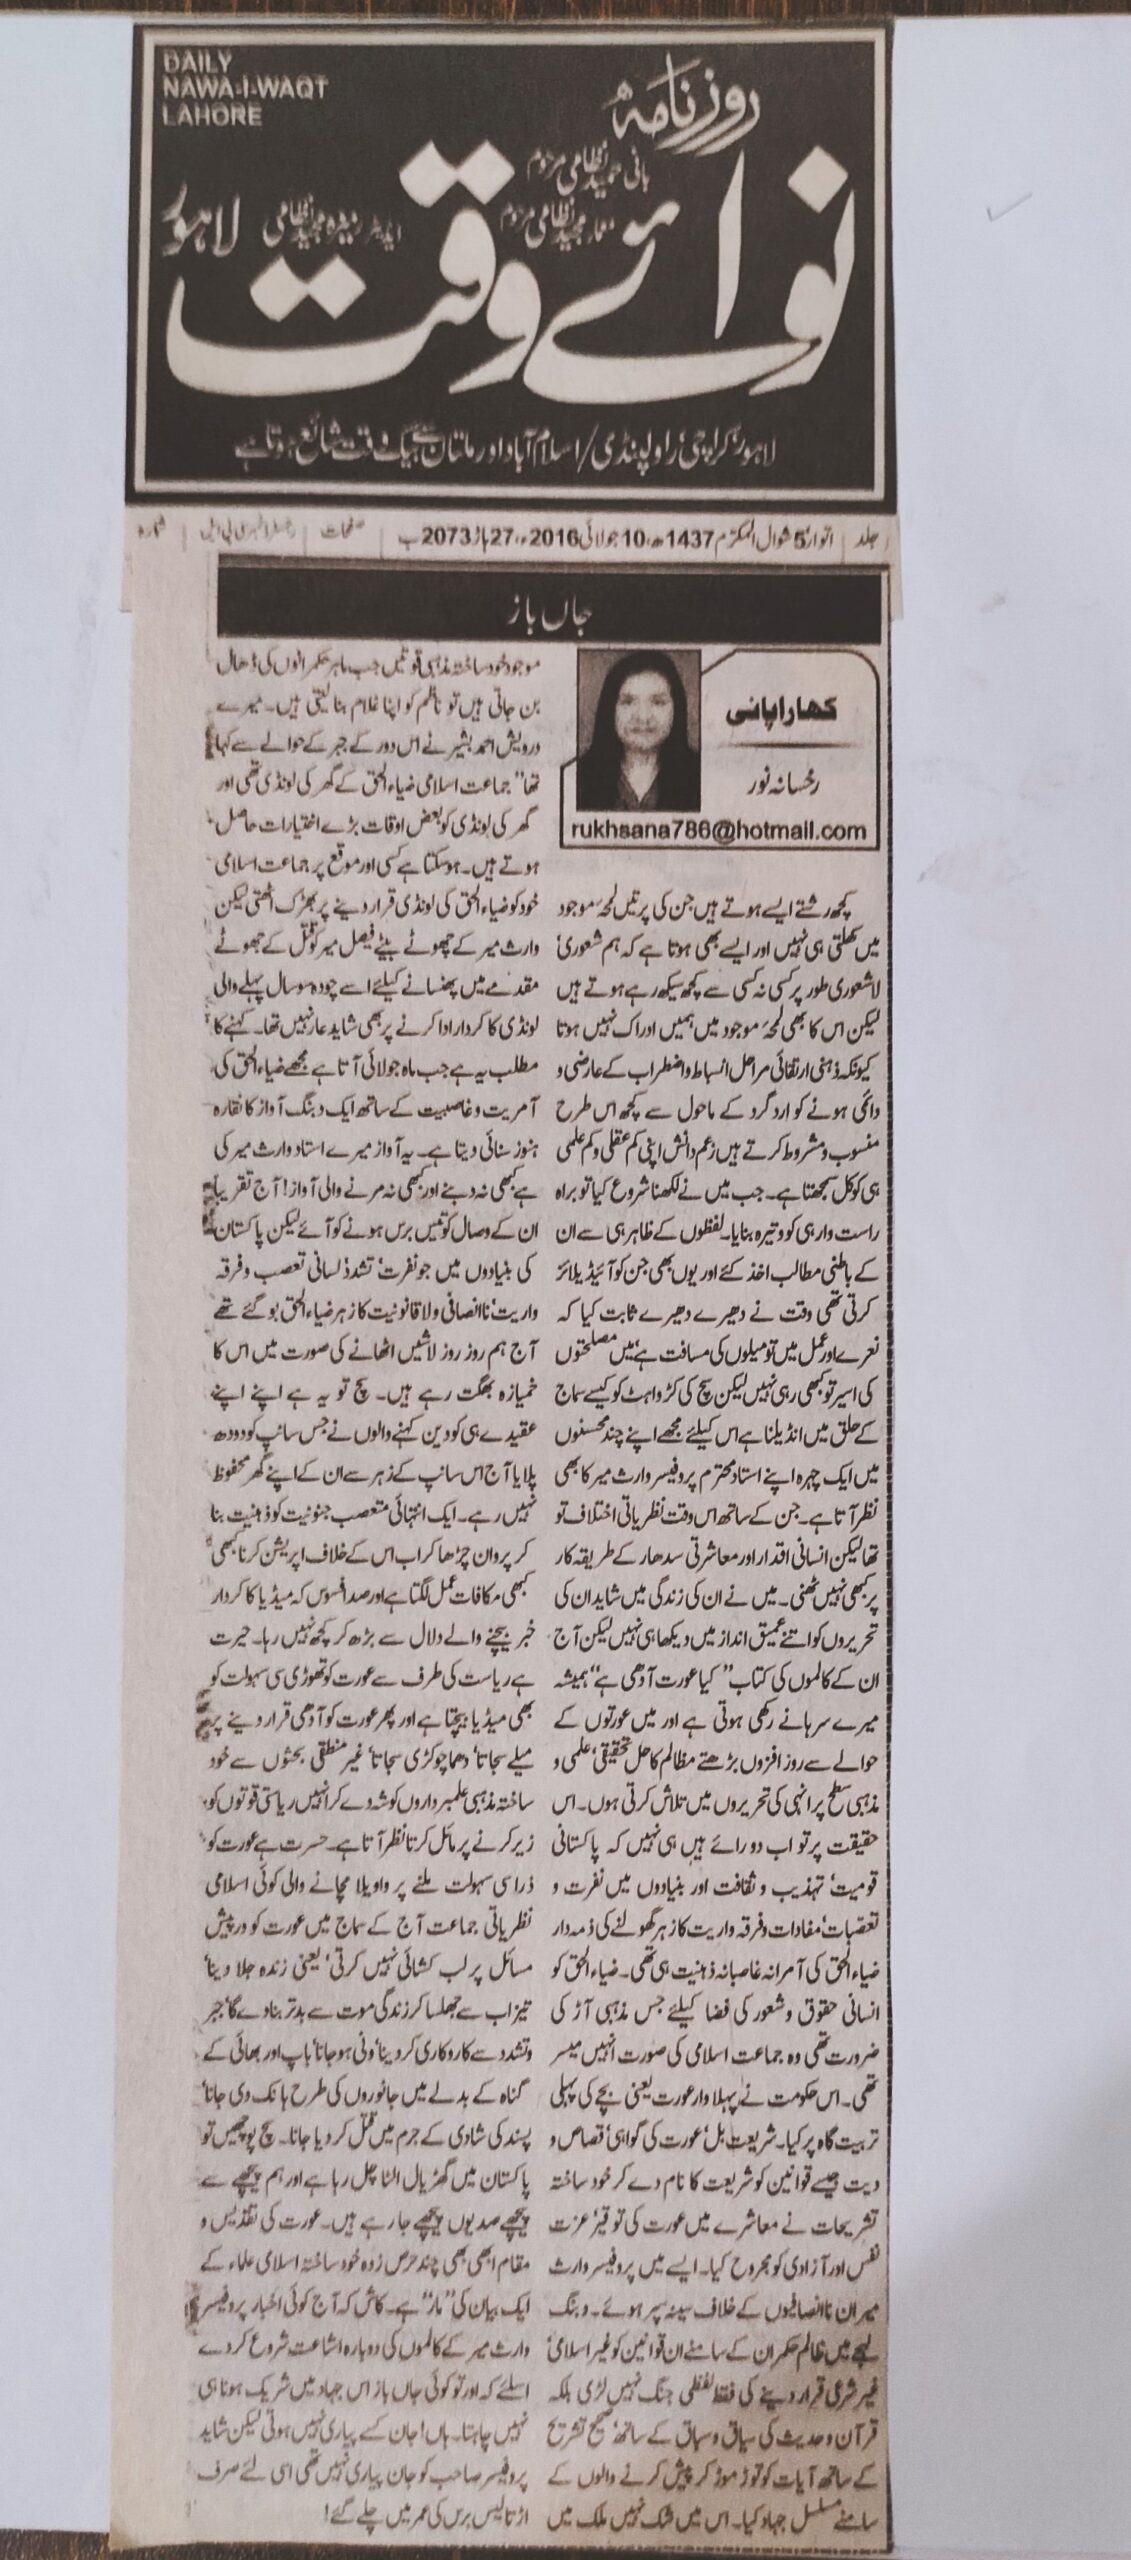 DAILY
NAWA-I-WAQT
LAHORE
روزنامہ
نوائے وقت
بانی حمید نظامی مرحوم
معمار مجید نظامی مرحوم
ایڈیٹر رمیزہ مجید نظامی
لاہور
لاہور، کراچی، راولپنڈی/اسلام آباد اور ملتان سے بیک وقت شائع ہوتا ہے
جلد | اتوار، 5 شوال المکرم 1437ھ، 10 جولائی 2016ء، 27 ہاڑ 2073ب | صفحات | رجسٹرڈ نمبر سی پی ایل | شمارہ
جاں باز
کھارا پانی
رخسانہ نور
rukhsana786@hotmail.com
کچھ رشتے ایسے ہوتے ہیں جن کی پرتیں لمحۂ موجود
میں کھلتی ہی نہیں اور ایسے بھی ہوتا ہے کہ ہم شعوری‘
لاشعوری طور پر کسی نہ کسی سے کچھ سیکھ رہے ہوتے ہیں
لیکن اس کا بھی لمحۂ موجود میں ہمیں ادراک نہیں ہوتا
کیونکہ ذہنی ارتقائی مراحل انبساط و اضطراب کے عارضی و
دائمی ہونے کو ارد گرد کے ماحول سے کچھ اس طرح
منسوب و مشروط کرتے ہیں زعم دانش اپنی کم عقلی و کم علمی
ہی کو کل سمجھتا ہے۔ جب میں نے لکھنا شروع کیا تو براہ
راست وار ہی کو وتیرہ بنایا۔ لفظوں کے ظاہر ہی سے ان
کے باطنی مطالب اخذ کئے اور یوں بھی جن کو آئیڈیلائز
کرتی تھی وقت نے دھیرے دھیرے ثابت کیا کہ
نعرے اور عمل میں تو میلوں کی مسافت ہے‘ میں مصلحتوں
کی اسیر تو کبھی رہی نہیں لیکن سچ کی کڑواہٹ کو کیسے سماج
کے حلق میں انڈیلنا ہے اس کیلئے مجھے اپنے چند محسنوں
میں ایک چہرہ اپنے استاد محترم پروفیسر وارث میر کا بھی
نظر آتا ہے۔ جن کے ساتھ اس وقت نظریاتی اختلاف تو
تھا لیکن انسانی اقدار اور معاشرتی سدھار کے طریقہ کار
پر کبھی نہیں ٹھنی۔ میں نے ان کی زندگی میں شاید ان کی
تحریروں کو اتنے عمیق انداز میں دیکھا ہی نہیں لیکن آج
ان کے کالموں کی کتاب ”کیا عورت آدھی ہے“ ہمیشہ
میرے سرہانے رکھی ہوتی ہے اور میں عورتوں کے
حوالے سے روز افزوں بڑھتے مظالم کا حل تحقیقی‘ علمی و
مذہبی سطح پر انہی کی تحریروں میں تلاش کرتی ہوں۔ اس
حقیقت پر تو اب دو رائے ہیں ہی نہیں کہ پاکستانی
قومیت‘ تہذیب و ثقافت اور بنیادوں میں نفرت و
تعصبات‘ مفادات و فرقہ واریت کا زہر گھولنے کی ذمہ دار
ضیاء الحق کی آمرانہ غاصبانہ ذہنیت ہی تھی۔ ضیاء الحق کو
انسانی حقوق و شعور کی فضا کیلئے جس مذہبی آڑ کی
ضرورت تھی وہ جماعت اسلامی کی صورت انہیں میسر
تھی۔ اس حکومت نے پہلا وار عورت یعنی بچے کی پہلی
تربیت گاہ پر کیا۔ شریعت بل‘ عورت کی گواہی‘ قصاص و
دیت جیسے قوانین کو شریعت کا نام دے کر خود ساختہ
تشریحات نے معاشرے میں عورت کی توقیر‘ عزت
نفس اور آزادی کو مجروح کیا۔ ایسے میں پروفیسر وارث
میر ان ناانصافیوں کے خلاف سینہ سپر ہوئے۔ دبنگ
لہجے میں ظالم حکمران کے سامنے ان قوانین کو غیر اسلامی‘
غیر شرعی قرار دینے کی فقط لفظی جنگ نہیں لڑی بلکہ
قرآن و حدیث کی سیاق و سباق کے ساتھ صحیح تشریح
کے ساتھ آیات کو توڑ موڑ کر پیش کرنے والوں کے
سامنے مسلسل جہاد کیا۔ اس میں شک نہیں ملک میں
موجود خود ساختہ مذہبی قوتیں جب ماہر حکمرانوں کی ڈھال
بن جاتی ہیں تو ناظم کو اپنا غلام بنا لیتی ہیں۔ میرے
درویش احمد بشیر نے اس دور کے جبر کے حوالے سے کہا
تھا ”جماعت اسلامی ضیاء الحق کے گھر کی لونڈی تھی اور
گھر کی لونڈی کو بعض اوقات بڑے اختیارات حاصل
ہوتے ہیں۔ ہو سکتا ہے کسی اور موقع پر جماعت اسلامی
خود کو ضیاء الحق کی لونڈی قرار دینے پر بھڑک اٹھتی لیکن
وارث میر کے چھوٹے بیٹے فیصل میر کو قتل کے جھوٹے
مقدمے میں پھنسانے کیلئے اسے چودہ سو سال پہلے والی
لونڈی کا کردار ادا کرنے پر بھی شاید عار نہیں تھا۔ کہنے کا
مطلب یہ ہے جب ماہ جولائی آتا ہے مجھے ضیاء الحق کی
آمریت و غاصبیت کے ساتھ ایک دبنگ آواز کا نقارہ
ہنوز سنائی دیتا ہے۔ یہ آواز میرے استاد وارث میر کی
ہے کبھی نہ دبنے اور کبھی نہ مرنے والی آواز! آج تقریباً
ان کے وصال کو تیس برس ہونے کو آئے لیکن پاکستان
کی بنیادوں میں جو نفرت‘ تشدد‘ لسانی تعصب و فرقہ
واریت‘ ناانصافی و لاقانونیت کا زہر ضیاء الحق بو گئے تھے
آج ہم روز روز لاشیں اٹھانے کی صورت میں اس کا
خمیازہ بھگت رہے ہیں۔ سچ تو یہ ہے اپنے اپنے
عقیدے ہی کو دین کہنے والوں نے جس سانپ کو دودھ
پلایا آج اس سانپ کے زہر سے ان کے اپنے گھر محفوظ
نہیں رہے۔ ایک انتہائی متعصب جنونیت کو ذہنیت بنا
کر پروان چڑھا کر اب اس کے خلاف اپریشن کرنا کبھی
کبھی مکافات عمل لگتا ہے اور صد افسوس کہ میڈیا کا کردار
خبر بیچنے والے دلال سے بڑھ کر کچھ نہیں رہا۔ حیرت
ہے ریاست کی طرف سے عورت کو تھوڑی سی سہولت کو
بھی میڈیا بیچتا ہے اور پھر عورت کو آدھی قرار دینے پر
میلے سجاتا‘ دھماچوکڑی سجاتا‘ غیر منطقی بحثوں سے خود
ساختہ مذہبی علمبرداروں کو شہ دے کر انہیں ریاستی قوتوں کو
زیر کرنے پر مائل کرتا نظر آتا ہے۔ حسرت ہے عورت کو
ذرا سی سہولت ملنے پر واویلا مچانے والی کوئی اسلامی
نظریاتی جماعت آج کے سماج میں عورت کو درپیش
مسائل پر لب کشائی نہیں کرتی‘ یعنی زندہ جلا دینا‘
تیزاب سے جھلسا کر زندگی موت سے بدتر بنا دے گا‘ جبر
و تشدد سے کاروکاری کر دینا‘ ونی ہو جانا‘ باپ اور بھائی کے
گناہ کے بدلے میں جانوروں کی طرح ہانک دی جانا‘
پسند کی شادی کے جرم میں قتل کر دیا جانا۔ سچ پوچھیں تو
پاکستان میں گھڑیال الٹا چل رہا ہے اور ہم پیچھے سے
پیچھے صدیوں پیچھے جا رہے ہیں۔ عورت کی تقدیس و
مقام ابھی بھی چند حرص زدہ خود ساختہ اسلامی علماء کے
ایک بیان کی ”مار“ ہے۔ کاش کہ آج کوئی اخبار پروفیسر
وارث میر کے کالموں کی دوبارہ اشاعت شروع کر دے
اسلئے کہ اور تو کوئی جاں باز اس جہاد میں شریک ہونا ہی
نہیں چاہتا۔ ہاں! جان کسے پیاری نہیں ہوتی لیکن شاید
پروفیسر صاحب کو جان پیاری نہیں تھی اسی لئے صرف
اڑتالیس برس کی عمر میں چلے گئے!